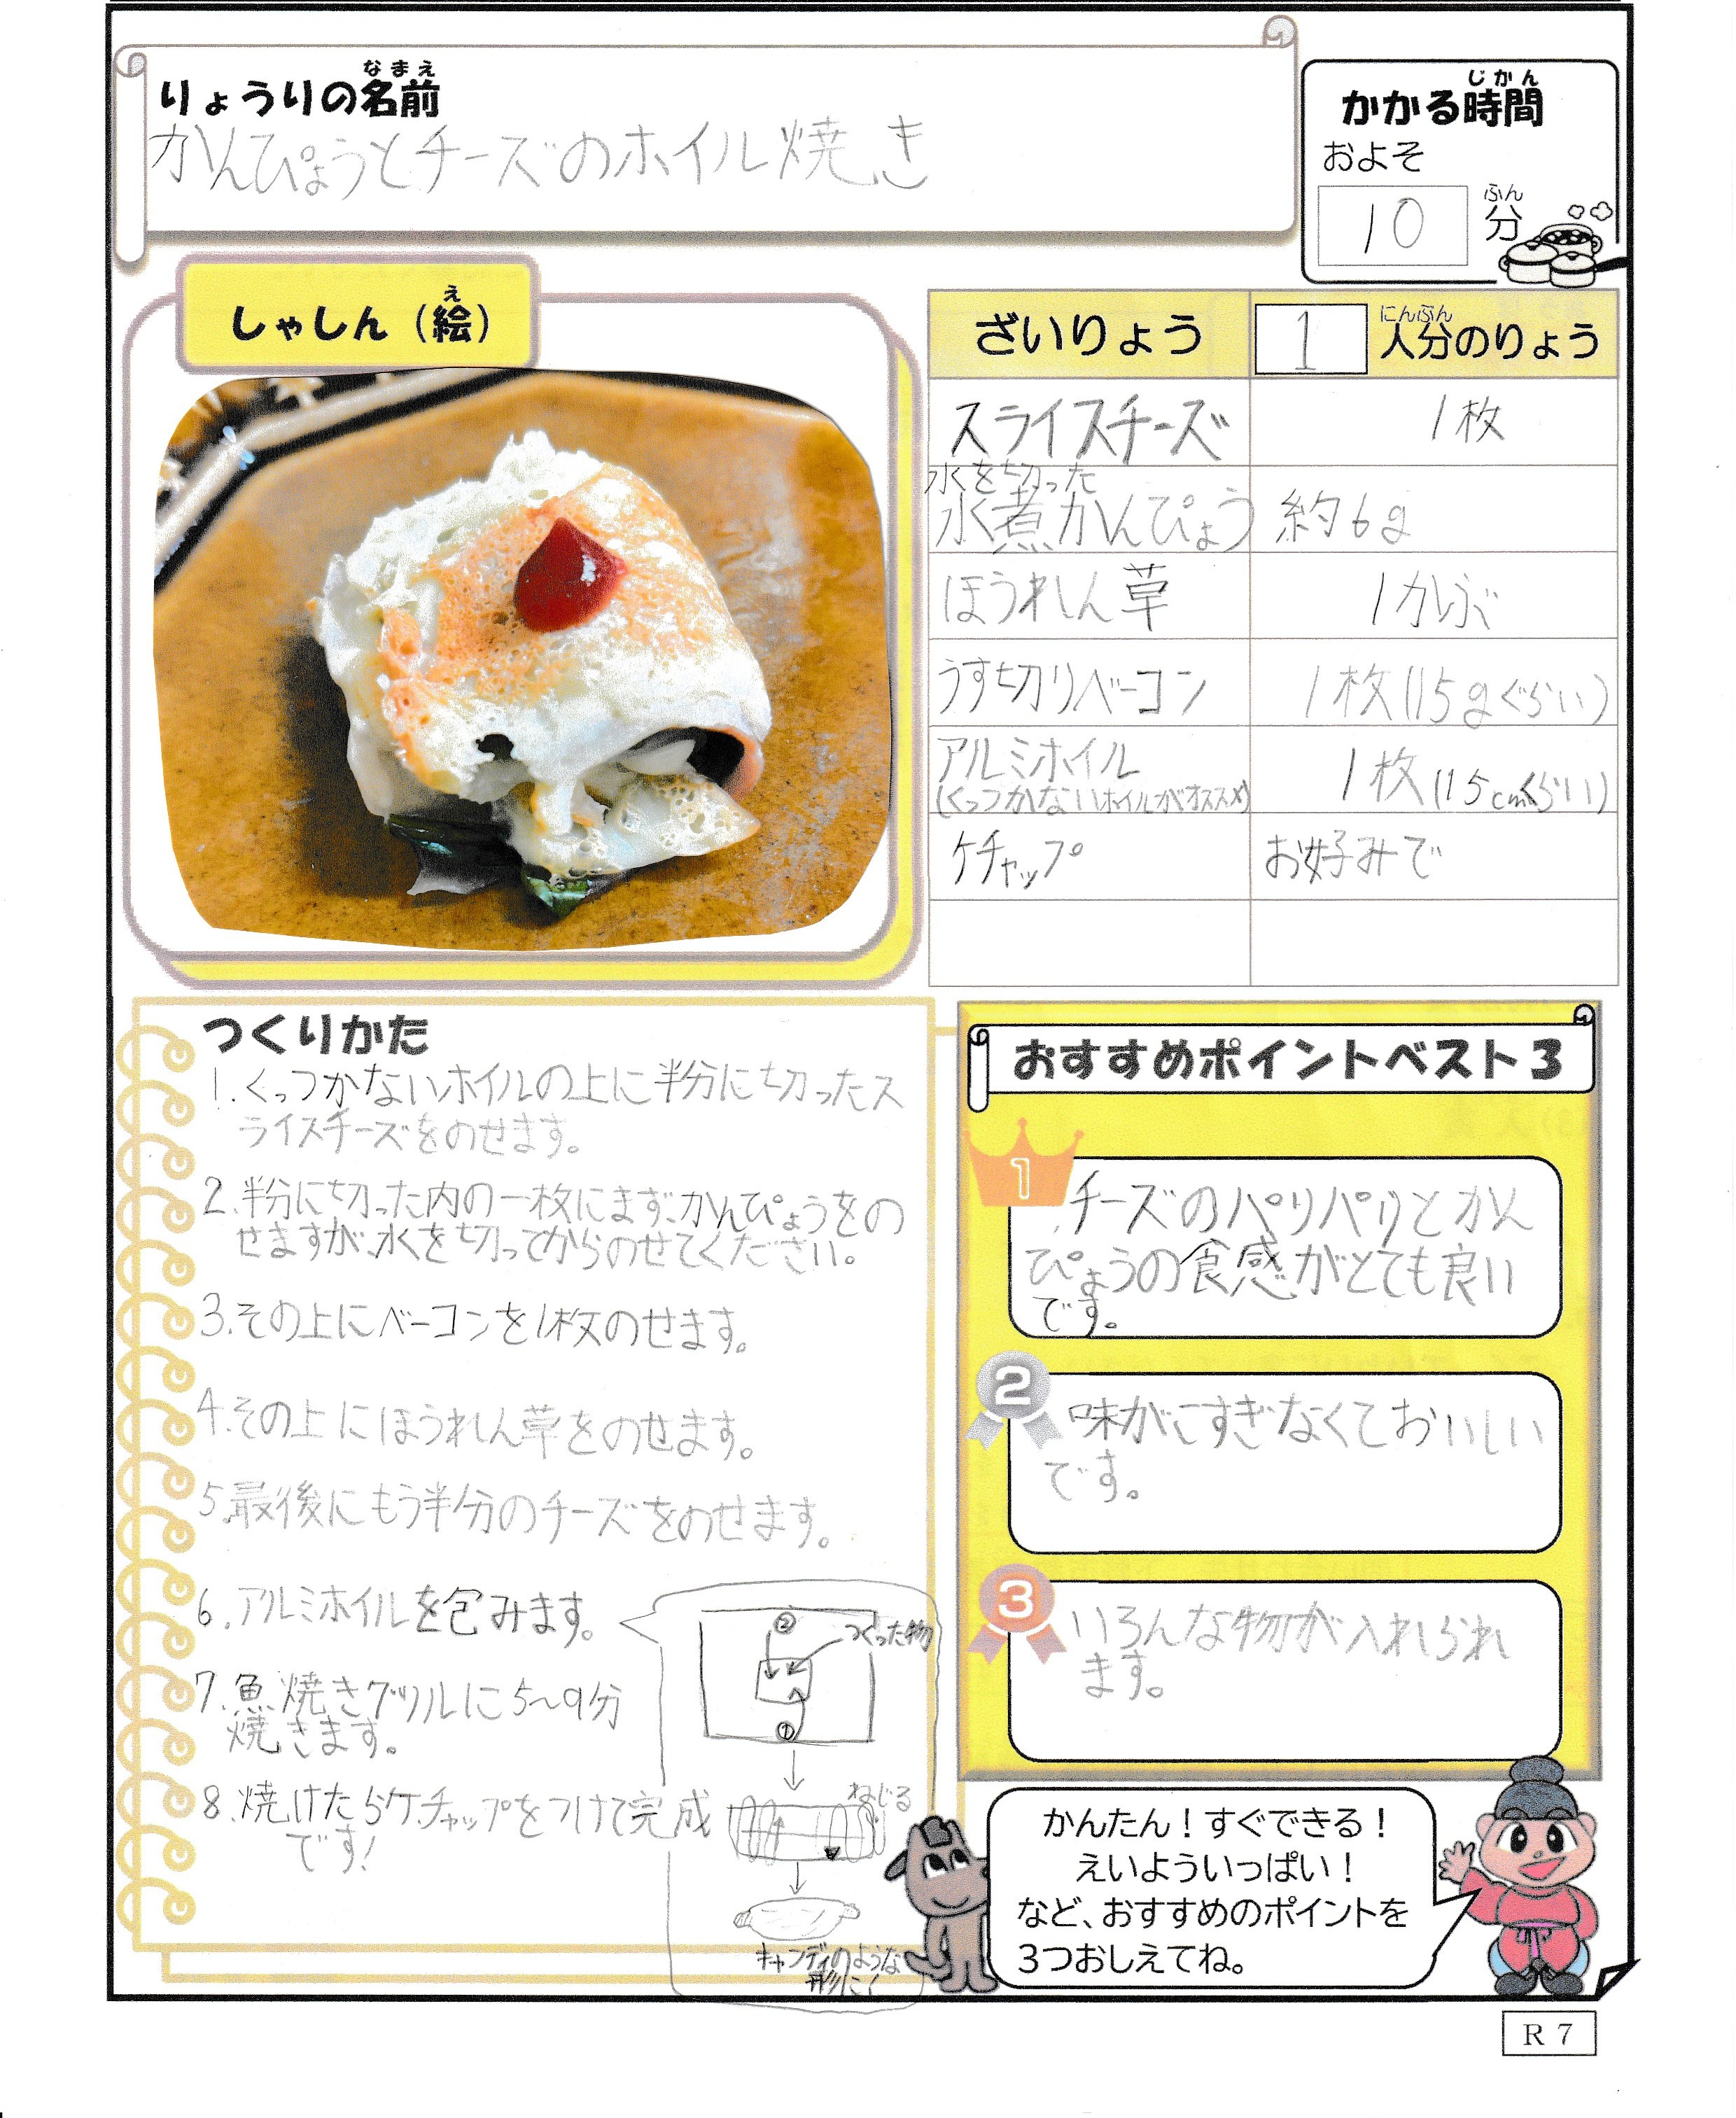 りょうりの名前
なまえ
かんぴょうとチーズのホイル焼き
かかる時間
じかん
およそ
10 分
ふん
しゃしん（絵）
え
ざいりょう 1 人分のりょう
にんぶん
スライスチーズ 1枚
水を切った
水煮かんぴょう 約6g
ほうれん草 1かぶ
うす切りベーコン 1枚(15gぐらい)
アルミホイル 1枚(15cmくらい)
(くっつかないホイルがオススメ)
ケチャップ お好みで
つくりかた
1.くっつかないホイルの上に半分に切ったス
ライスチーズをのせます。
2.半分に切った内の一枚にまず、かんぴょうをの
せますが、水を切ってからのせてください。
3.その上にベーコンを1枚のせます。
4.その上にほうれん草をのせます。
5.最後にもう半分のチーズをのせます。
6.アルミホイルを包みます。
② つくった物
①
ねじる
キャンディのような
形に
7.魚焼きグリルに5〜9分
焼きます。
8.焼けたらケチャップをつけて完成
です!
おすすめポイントベスト3
1
チーズのパリパリとかん
ぴょうの食感がとても良い
です。
2
味がこすぎなくておいしい
です。
3
いろんな物が入れられ
ます。
かんたん！すぐできる！
えいよういっぱい！
など、おすすめのポイントを
3つおしえてね。
R7